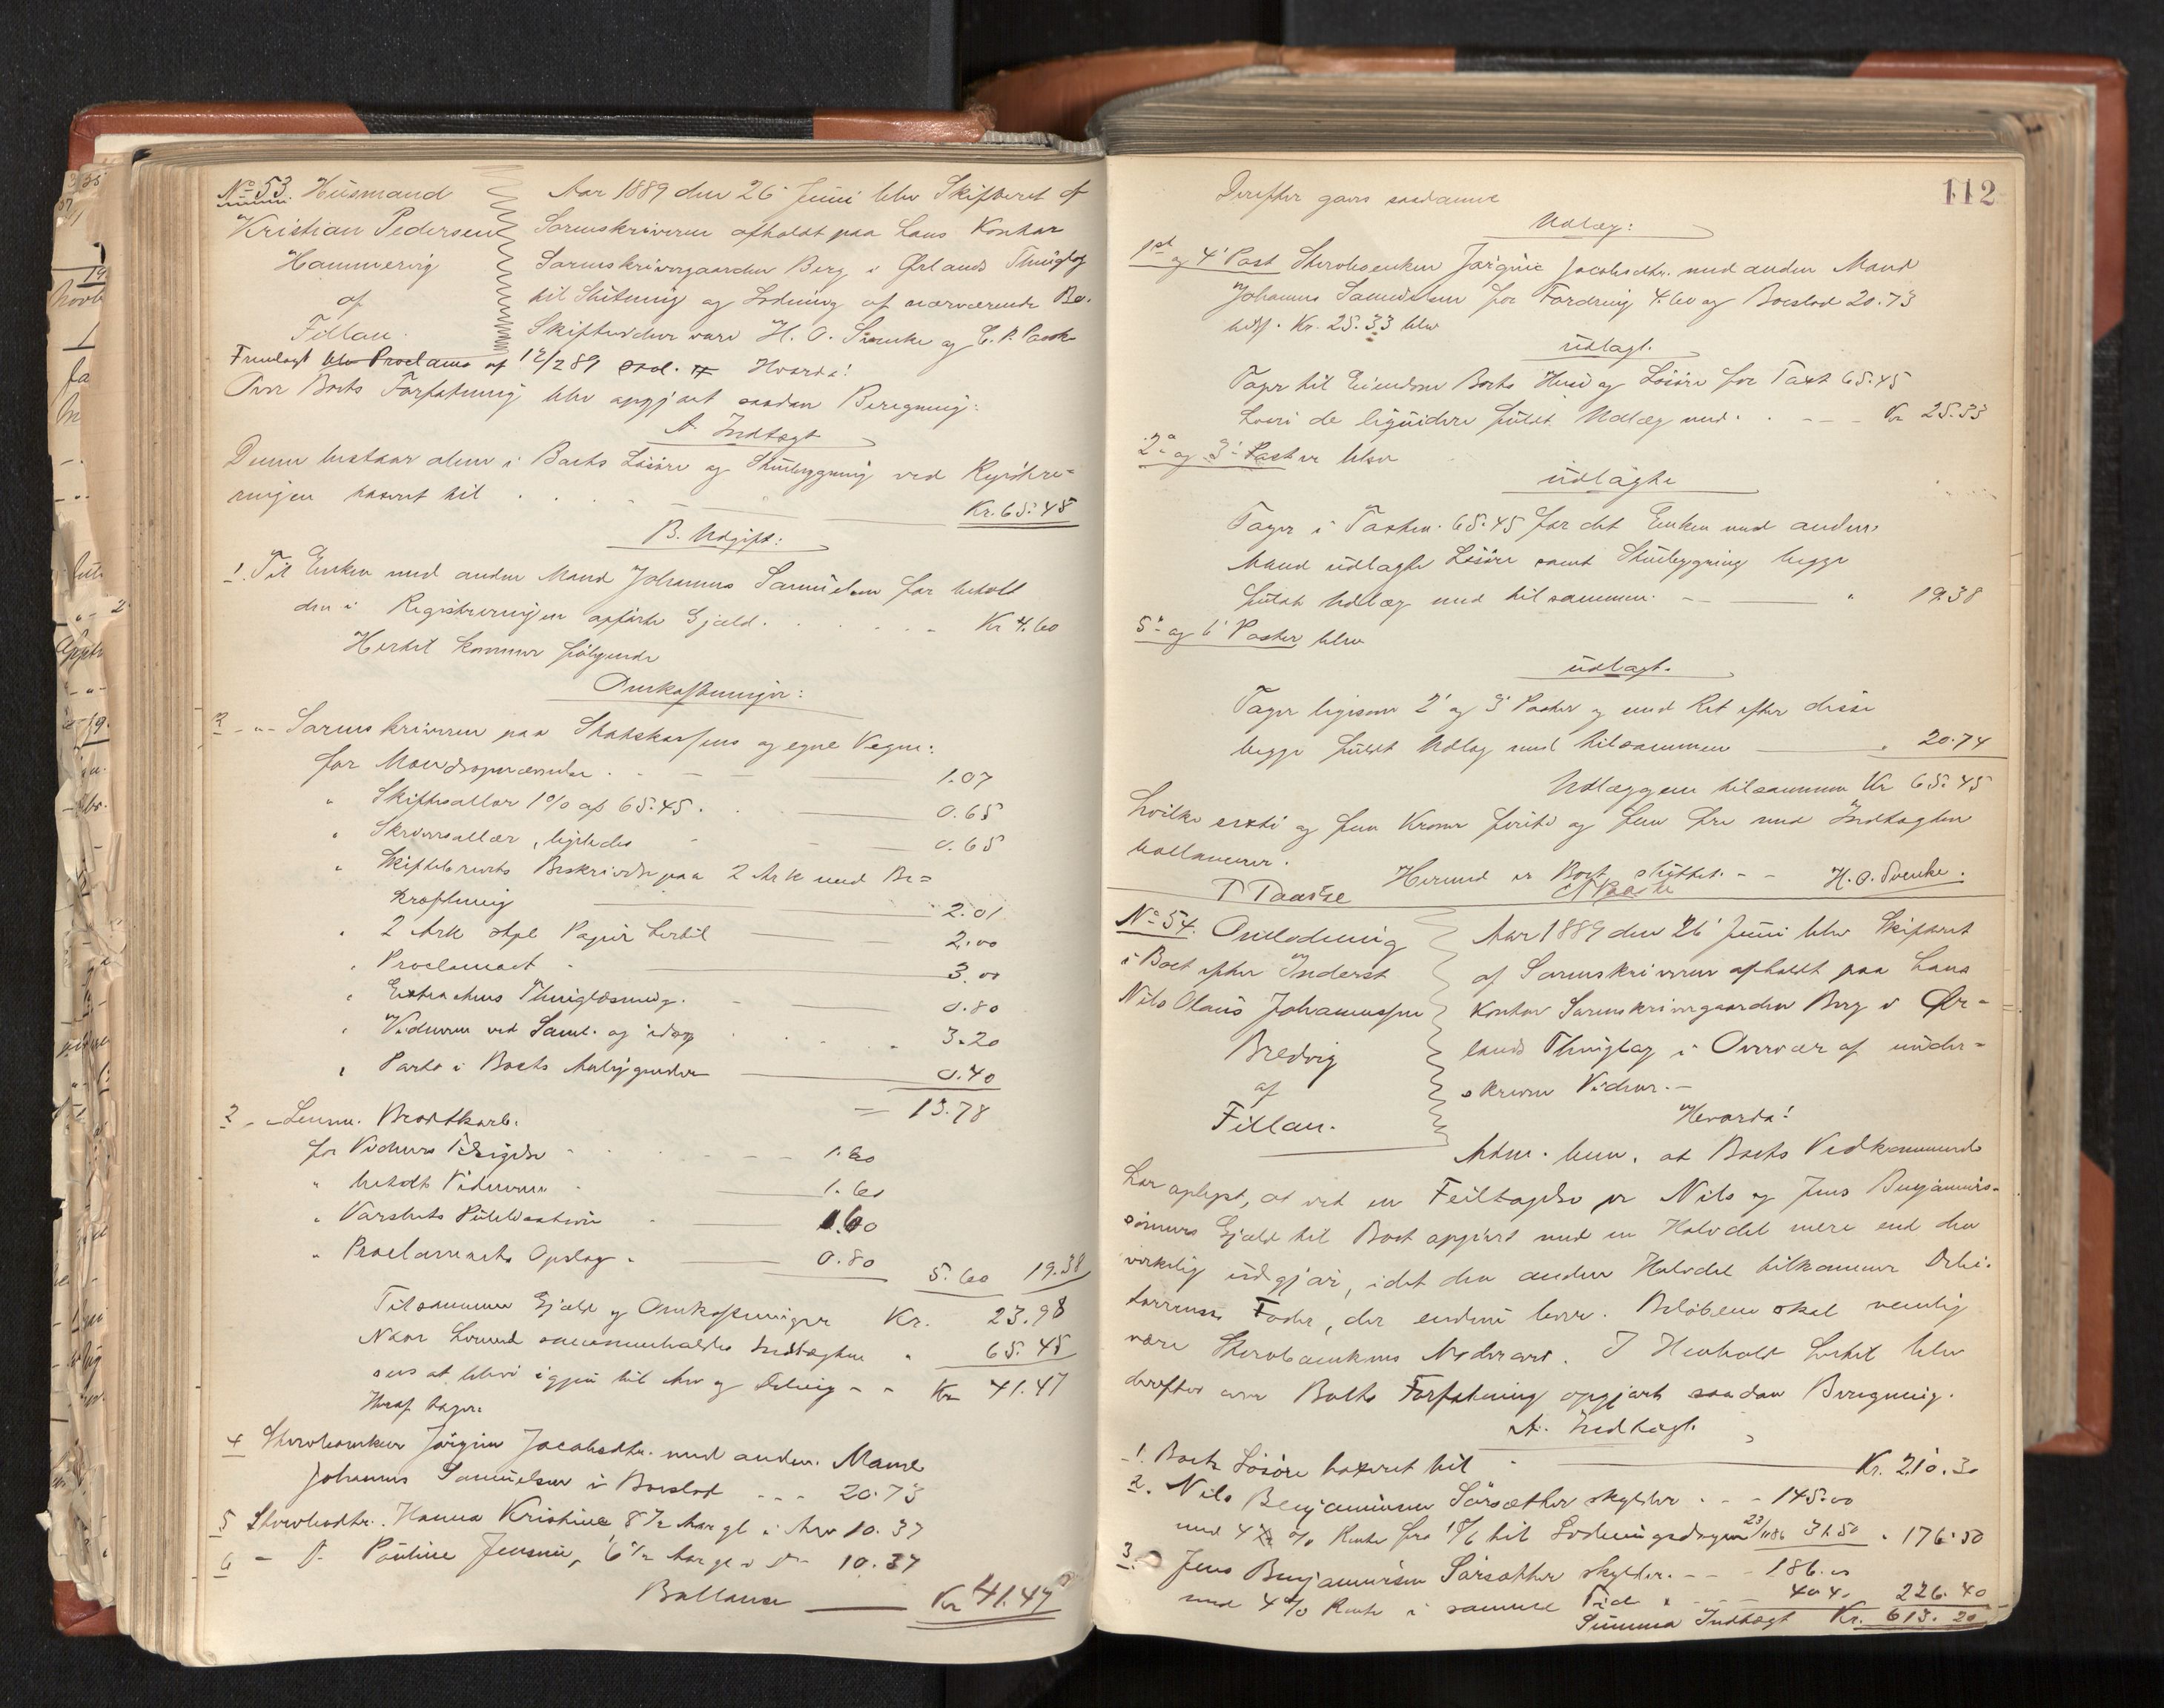 No 53. Husmand
Kristian Pedersen
Hammervig
af
Fillan.
Aar 1889 den 26' Juni blev Skifteret af
Sorenskriveren afholdt paa hans Kontor
Sorenskrivergaarden Berg i Ørlands Thinglag
til Slutning og Lodning af nærværende Bo.
Skiftevidner vare H. O. Svenke og
Fremlagt blev Proclama af 12/2 89 Hvorda!
Over Boets Forfatning blev opgjort saadan Beregning:
A. Indtægt
Denne bestaar alene i Boets Løsøre og Stuebygning ved Registre-
ringen taxeret til . . . Kr. 65.45
B. Udgift:
1. Til Enken med anden Mand Johannes Samuelsen for betalt
den i Registreringen opførte Gjæld. . . . Kr 4.60
Hertil kommer følgende
Omkostninger:
2 - "- Sorenskriveren paa Statskassens og egne Vegne:
for 1.07
" Skiftesallær 1% af 65.45. 0.65
" Skriversallær, ligeledes 0.65
" Skiftebrevets Beskrivelse paa 2 Ark med Be=
kræftning 2.01
" 2 Ark stpl Papir hertil 2.00
" Proclamaet 3.00
" Extractens Thinglæsning. 0.80
" Vidnerne ved Saml. og idag 3.20
" Porto i Boets Anliggender 0.40
= 13.78
3 - - Lensm.
for Vidners Tilsigelse 1.60
" betalt Vidnerne 1.60
" Varslets Publikation 1.60
" Proclamaets Opslag. 0.80 5.60 19.38
Tilsammen Gjæld og Omkostninger Kr. 23.98
Naar hermed sammenholdes Indtægten " 65.45
sees at blive igjen til Arv og Deling - - Kr 41.47
Heraf tager:
4 Stervboenken Jørgine Jacobsdtr. med anden Mand
Johannes Samuelsen i Boeslod - - - 20.73
5 Stervbodtr. Hanna Kristine 8 1/2 Aar gl i Arv 10.37
6 - D. Pauline Jensine, 6 1/2 Aar gl i D- 10.37
Ballance Kr 41.47
112
Derefter gaves saadanne
Udlæg:
1ste og 4' Post Sterboenken Jørgine Jacobsdtr. med anden Mand
Johannes Samuelsen for Fordring 4.60 og Boeslod 20.73
Kr. 25.33 blev
udlagt.
Tager til Eiendom Boets Hus og Løsøre for Taxt 65.45
hvori de liquidere fuldt Udlæg med. . - - - Kr 25.33
2' og 3' Poster blev
udlagte
Tager i Taxten 65.45 for det Enken med anden
Mand udlagte Løsøre samt Stuebygning begge
fuldt Udlæg med tilsammen " 19.38
5' og 6' Poster blev
udlagt.
Tager ligesom 2' og 3' Poster og med Ret efter disse
begge fuldt Udlæg med tilsammen " 20.74
Udlæggene tilsammen Kr 65.45
hvilke sexti og fem Kroner firti og fem Øre med Indtægten
ballancerer.
Hermed er Boet sluttet. - - H. O. Svenke.
No 54. Omlodning
i Boet efter Inderst
Nils Olaus Johannessen
Bredvig
af
Fillan.
Aar 1889 den 26' Juni blev Skifteret
af Sorenskriveren afholdt paa hans
Kontor Sorenskrivergaarden Berg i Ør-
lands Thinglag i Overvær af under-
skrevne Vidner. -
Hvorda!
Adm. bem. at Boets Vedkommende
har oplyst, at ved en Feiltagelse er Nils og Jens Benjamins-
sønners Gjæld til Boet opført med en Halvdel mere end den
virkelig udgjør, idet den anden Halvdel tilkommer Debi-
torernes Fader, der endnu lever. Beløbene skal nemlig
være Sterboenkens Mødrearv. I Henhold hertil blev
derefter over Boets Forfatning opgjort saadan Beregning.
A. Indtægt.
1. Boets Løsøre taxeret til Kr. 210.30
2. Nils Benjaminsen Sørsætter skylder . - - 145.00
med 4 % Rente fra 18/6 til Lodningsdagen 23/11 86 31.50 " 176.50
3. Jens Benjaminsen Sørsætter skylder. - - - 186.00
med 4% Rente i samme Tid " - - - 40.40 226.40
Summa Indtægt Kr. 613.20